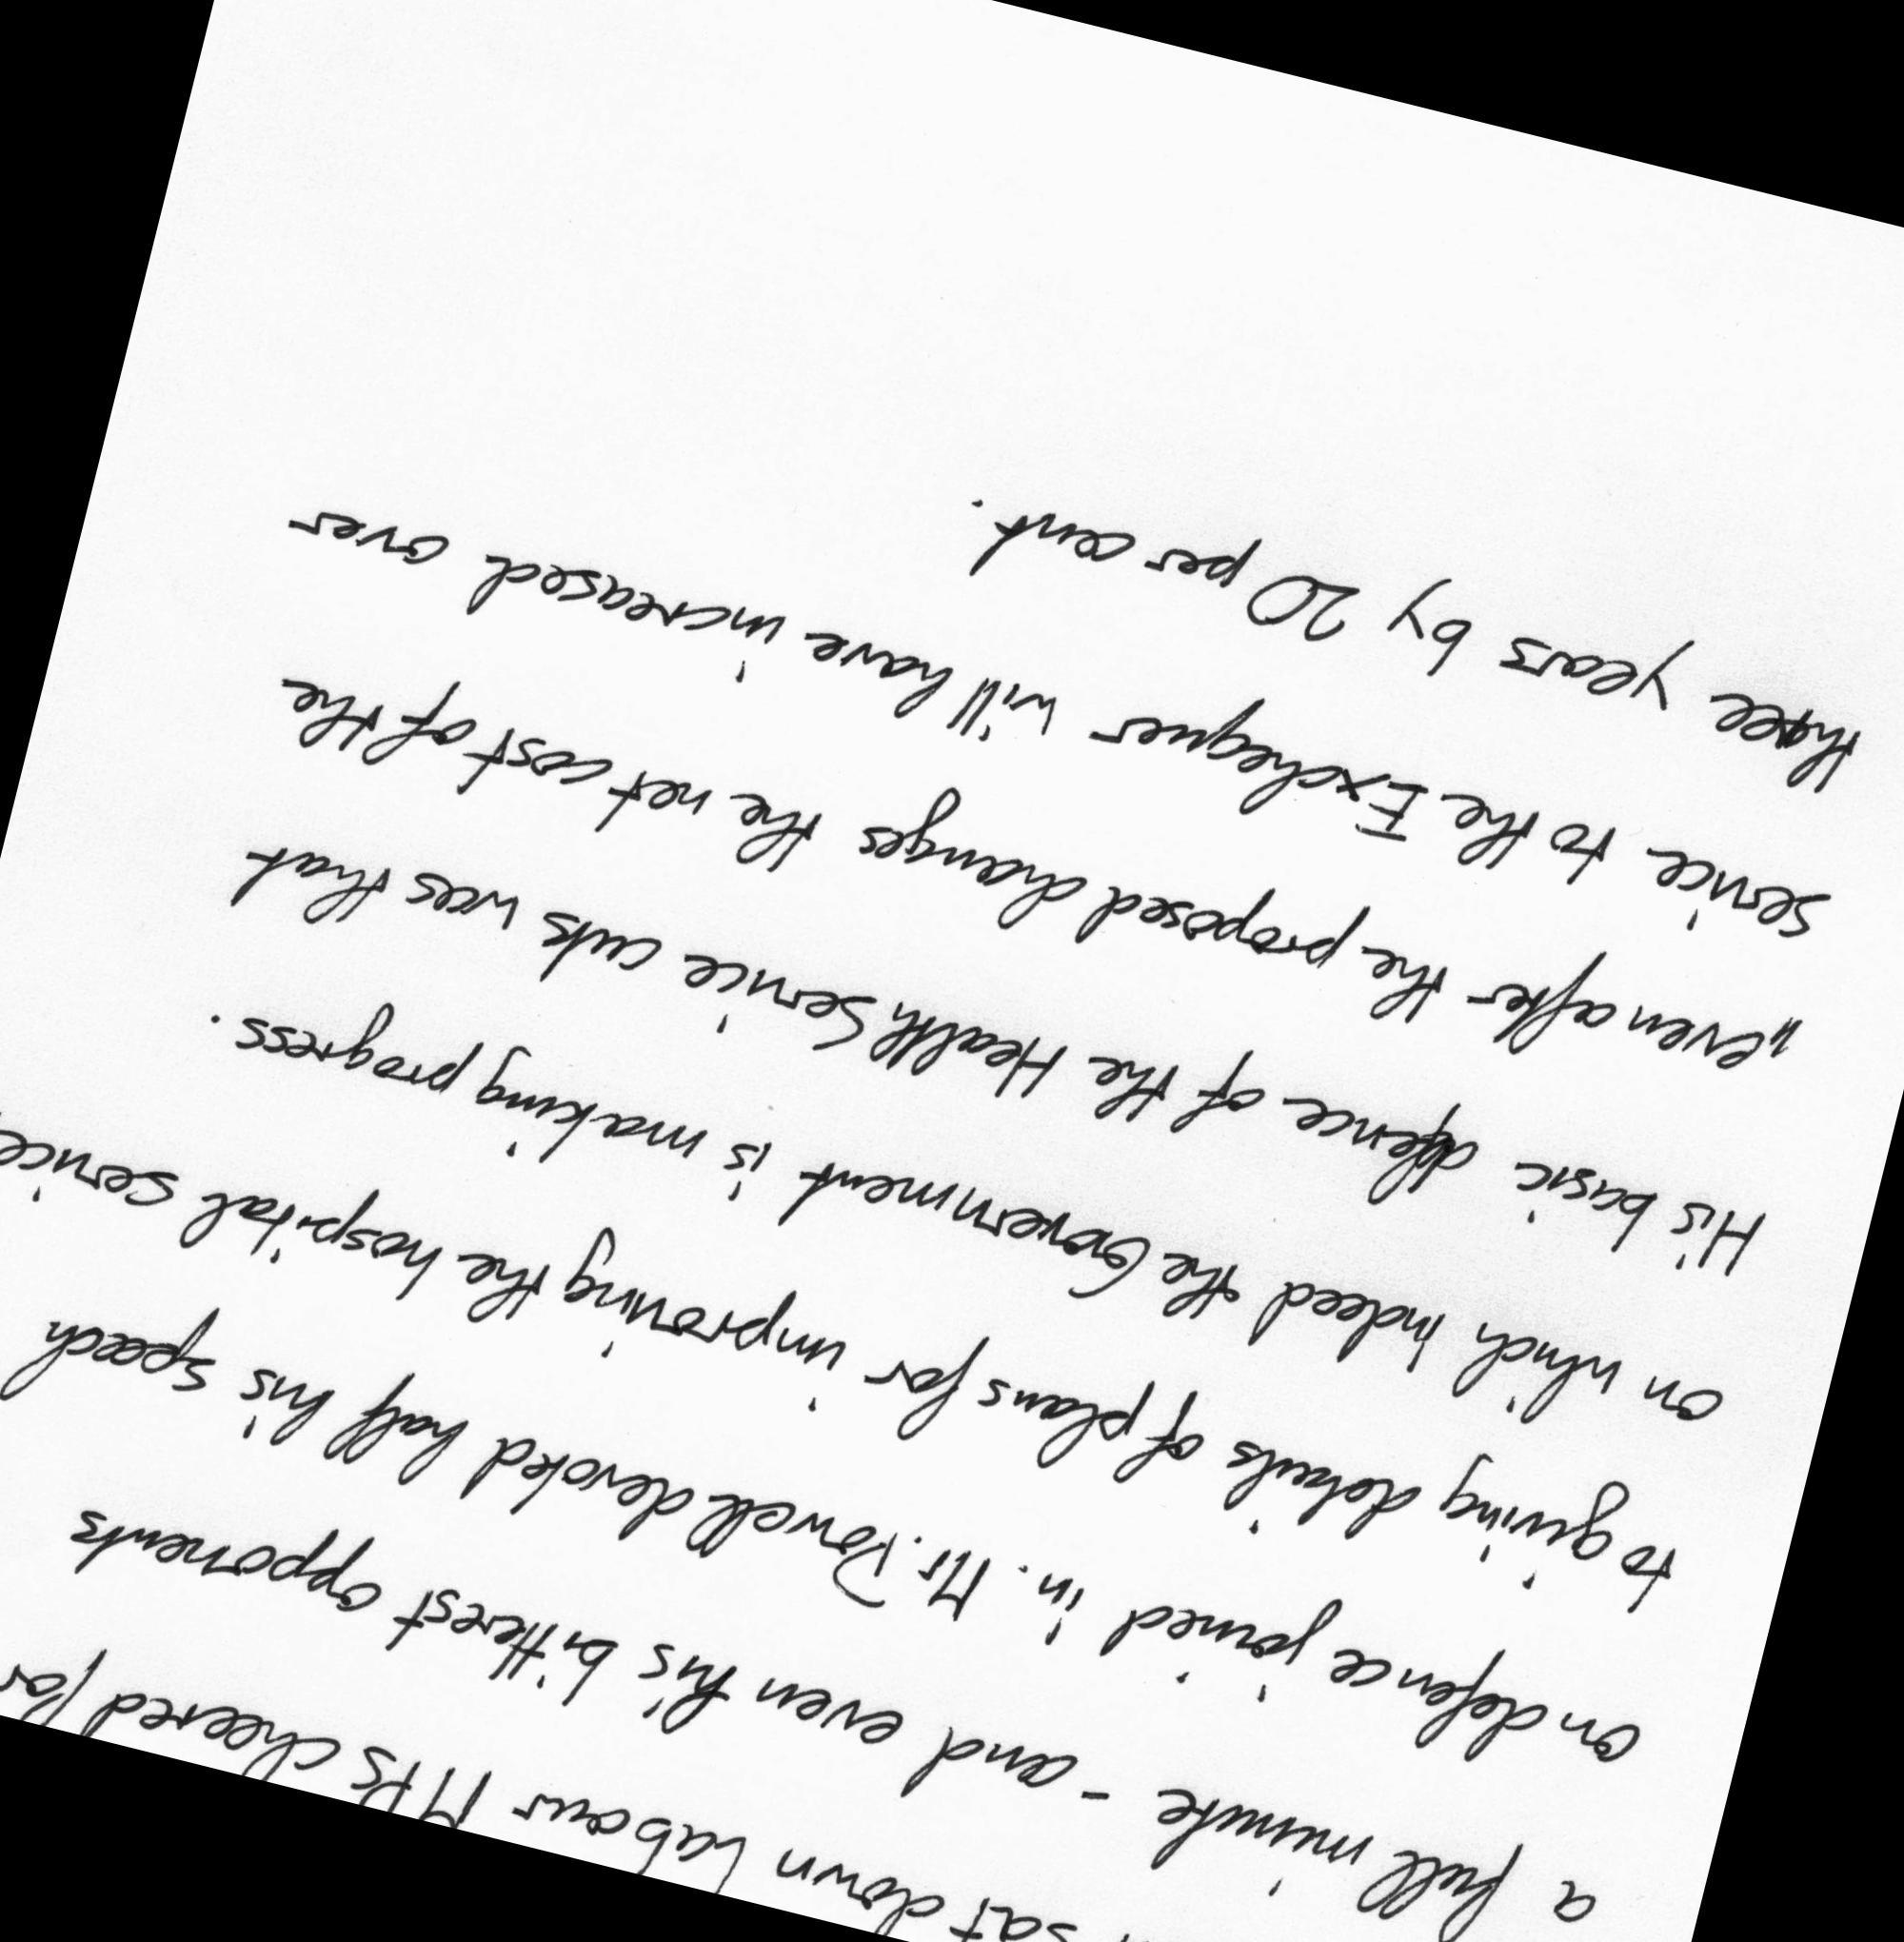 sat down Labour MPs cheered for
a full minute - and even his bitterest opponents
on defence joined in. Mr. Powell devoted half his speech
to giving details of plans for improving the hospital service
on which indeed the Government is making progress.
His basic defence of the Health Service cuts was that
"even after the proposed changes the net cost of the
service to the Exchequer will have increased over
three years by 20 per cent.